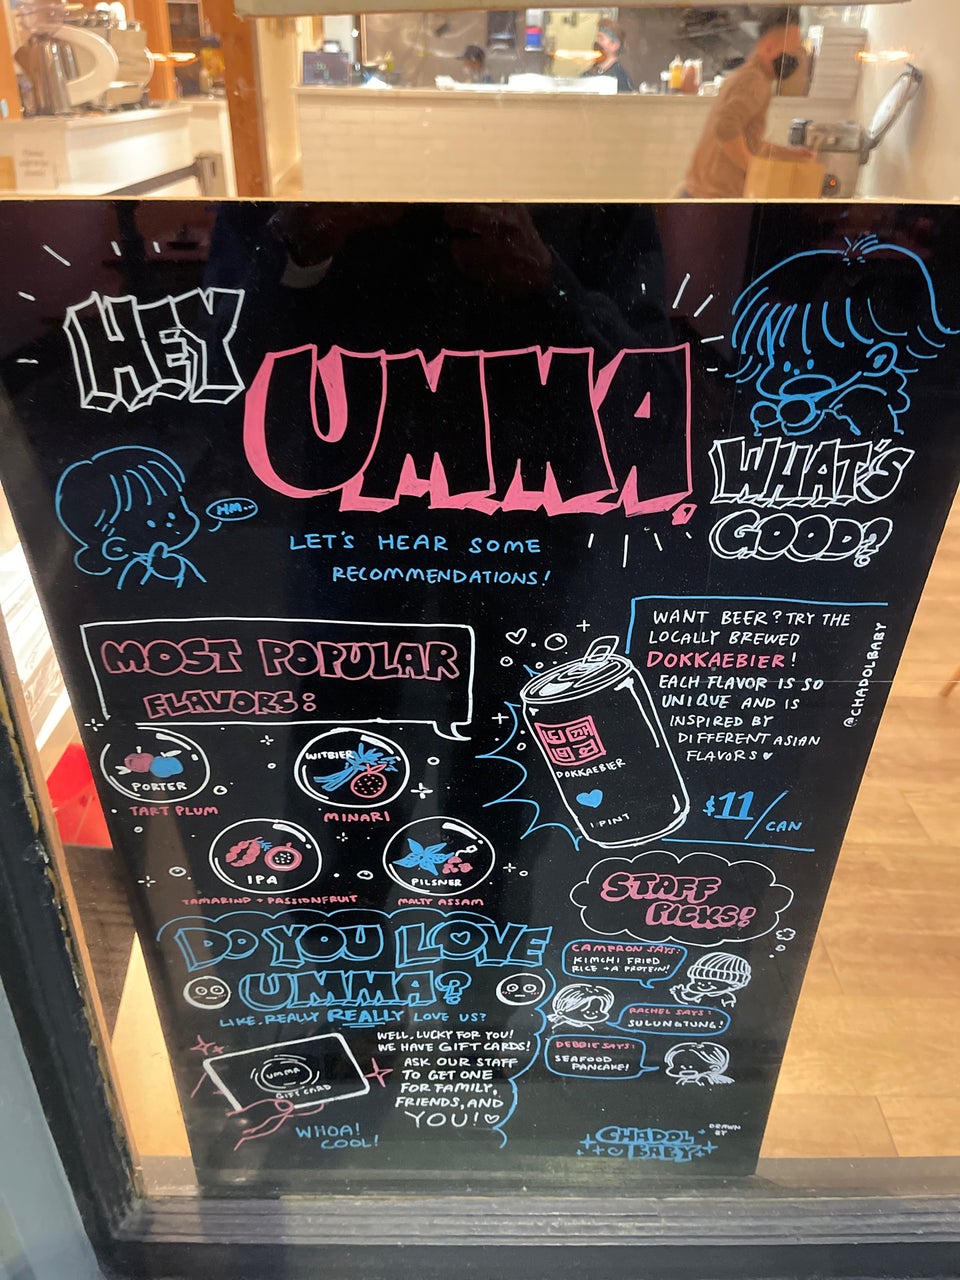 HEY
UMMA.
WHAT'S
GOOD?
HM..
LET'S HEAR SOME
RECOMMENDATIONS!
MOST POPULAR
FLAVORS:
PORTER
TART PLUM
WITBIER
MINARI
IPA
TAMARIND + PASSIONFRUIT
PILSNER
MALTY ASSAM
WANT BEER? TRY THE
LOCALLY BREWED
DOKKAEBIER!
EACH FLAVOR IS SO
UNIQUE AND IS
INSPIRED BY
DIFFERENT ASIAN
FLAVORS ♥
@CHADOLBABY
DOKKAEBIER
1 PINT
$11/CAN
STAFF
PICKS!
CAMERON SAYS:
KIMCHI FRIED
RICE + A PROTEIN!
RACHEL SAYS:
SULUNGTUNG!
DEBBIE SAYS:
SEAFOOD
PANCAKE!
DO YOU LOVE
UMMA?
LIKE, REALLY REALLY LOVE US?
WELL, LUCKY FOR YOU!
WE HAVE GIFT CARDS!
ASK OUR STAFF
TO GET ONE
FOR FAMILY,
FRIENDS, AND
YOU! ♡
UMMA
GIFT CARD
WHOA!
COOL!
DRAWN
BY
CHADOL
BABY